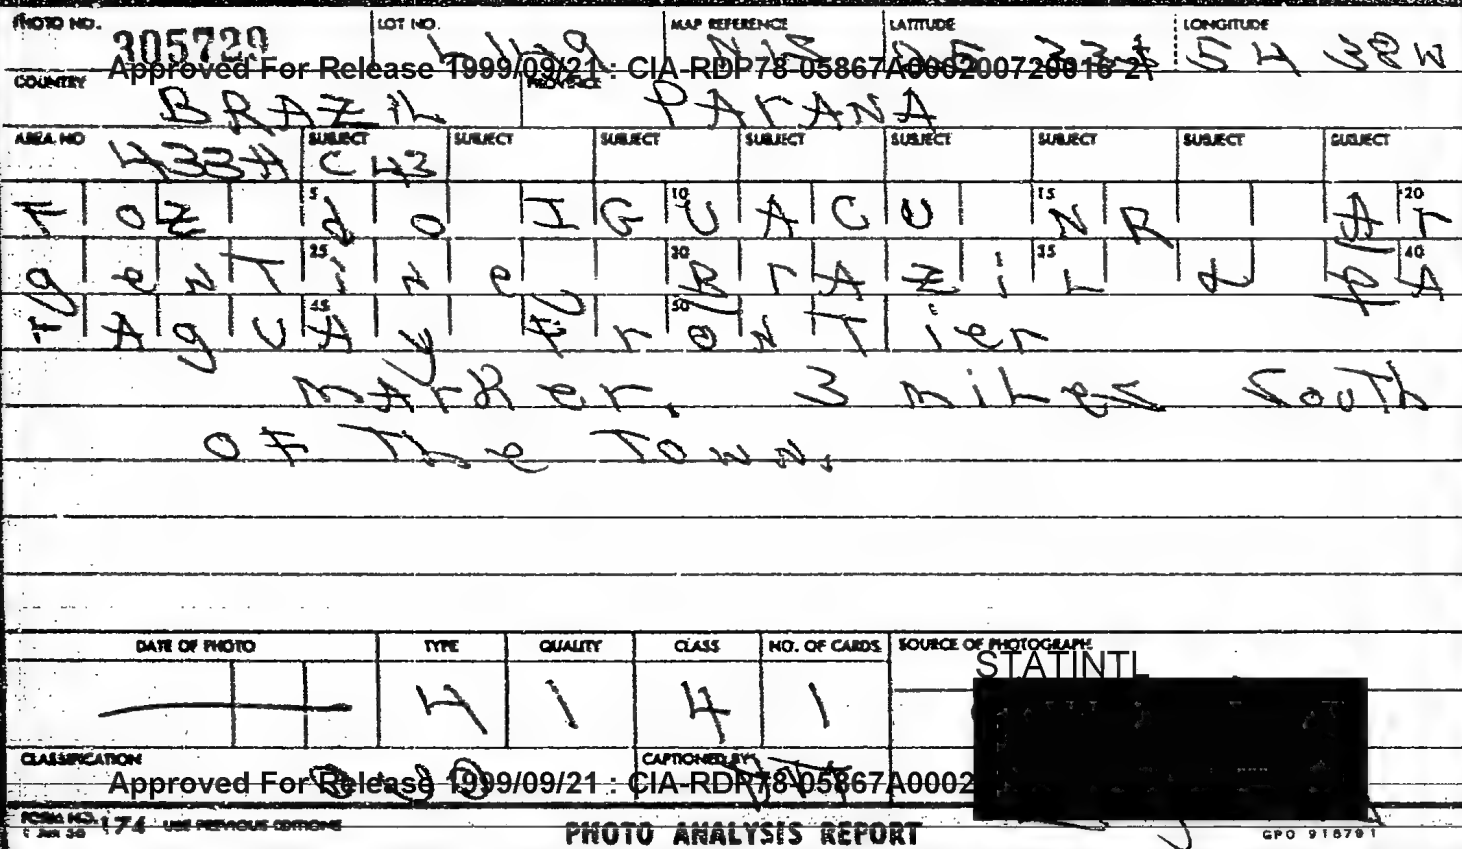 PHOTO NO. LOT NO. MAP REFERENCE LATITUDE LONGITUDE
305729 54 38W
Approved For Release 1999/09/21 : CIA-RDP78-05867A000200720016-2
COUNTRY BRAZIL PROVINCE PARANA
AREA NO SUBJECT SUBJECT SUBJECT SUBJECT SUBJECT SUBJECT SUBJECT SUBJECT
433A C43
5 10 15 20
FOZ do IGUACU NR Ar
25 30 35 40
genTine BrAziL & PA
45 50
rAgUAy FronTier
mArker. 3 miles South
OF The Town.
DATE OF PHOTO TYPE QUALITY CLASS NO. OF CARDS SOURCE OF PHOTOGRAPH
STATINTL
4 1 4 1
CLASSIFICATION CAPTIONED BY
Approved For Release 1999/09/21 : CIA-RDP78-05867A0002
FORM NO. 174 USE PREVIOUS EDITIONS PHOTO ANALYSIS REPORT GPO 918791
1 JUN 56